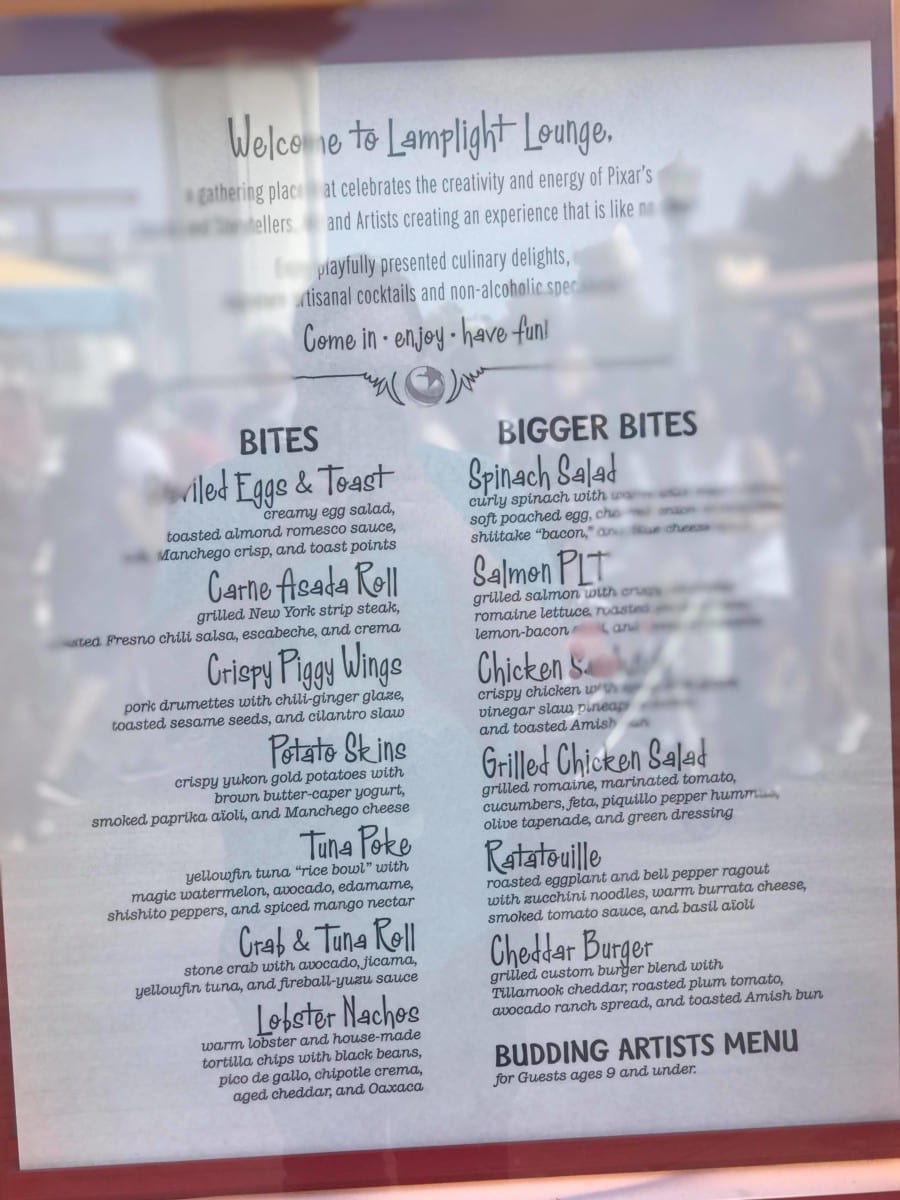 Welcome to Lamplight Lounge,
gathering place at celebrates the creativity and energy of Pixar's
and Artists creating an experience that is like
playfully presented culinary delights,
cocktails and non-alcoholic
Come in · enjoy · have fun!
BITES
Eggs & Toast
creamy egg salad,
toasted almond romesco sauce,
Manchego crisp, and toast points
Carne Asada Roll
grilled New York strip steak,
Fresno chili salsa, escabeche, and crema
Crispy Piggy Wings
pork drumettes with chili-ginger glaze,
toasted sesame seeds, and cilantro slaw
Potato Skins
crispy yukon gold potatoes with
brown butter-caper yogurt,
smoked paprika aïoli, and Manchego cheese
Tuna Poke
yellowfin tuna “rice bowl” with
magic watermelon, avocado, edamame,
shishito peppers, and spiced mango nectar
Crab & Tuna Roll
stone crab with avocado, jicama,
yellowfin tuna, and fireball-yuzu sauce
Lobster Nachos
warm lobster and house-made
tortilla chips with black beans,
pico de gallo, chipotle crema,
aged cheddar, and Oaxaca
BIGGER BITES
Spinach Salad
curly spinach with
soft poached egg,
shiitake “bacon,” and blue cheese
Salmon PLT
grilled salmon with
romaine lettuce, roasted
lemon-bacon and
Chicken
crispy chicken with
vinegar slaw,
and toasted Amish
Grilled Chicken Salad
grilled romaine, marinated tomato,
cucumbers, feta, piquillo pepper hummus,
olive tapenade, and green dressing
Ratatouille
roasted eggplant and bell pepper ragout
with zucchini noodles, warm burrata cheese,
smoked tomato sauce, and basil aïoli
Cheddar Burger
grilled custom burger blend with
Tillamook cheddar, roasted plum tomato,
avocado ranch spread, and toasted Amish bun
BUDDING ARTISTS MENU
for Guests ages 9 and under.